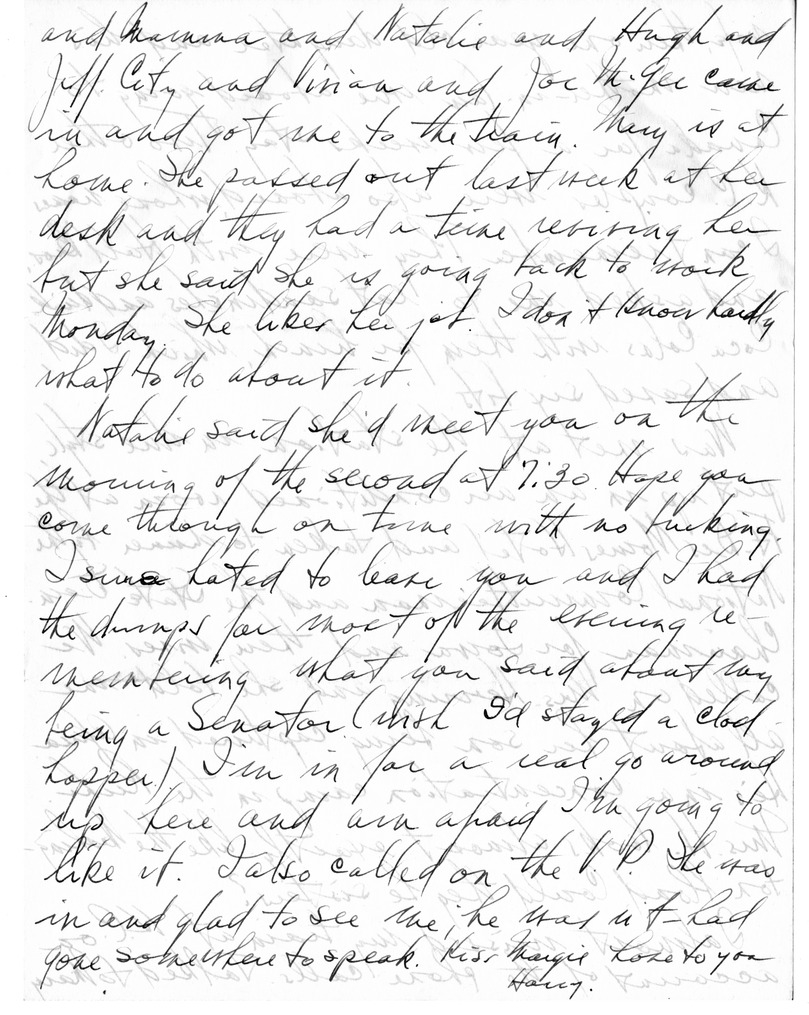 and Mamma and Natalie and Hugh and
Jeff. City and Vivian and Joe McGee came
in and got me to the train. Mary is at
home. She passed out last week at her
desk and they had a time reviving her
but she said she is going back to work
Monday. She likes her job. I don't know hardly
what to do about it.
Natalie said she'd meet you on the
morning of the second at 7:30. Hope you
come through on time with no bucking.
I sure hated to leave you and I had
the dumps for most of the evening re-
membering what you said about my
being a Senator (wish I'd stayed a clod-
hopper) I'm in for a real go around
up here and am afraid I'm going to
like it. I also called on the V.P. She was
in and glad to see me; he was not - had
gone somewhere to speak. Kiss Margie Love to you
Harry.